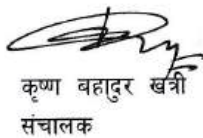 कृष्ण बहादुर खत्री
संचालक